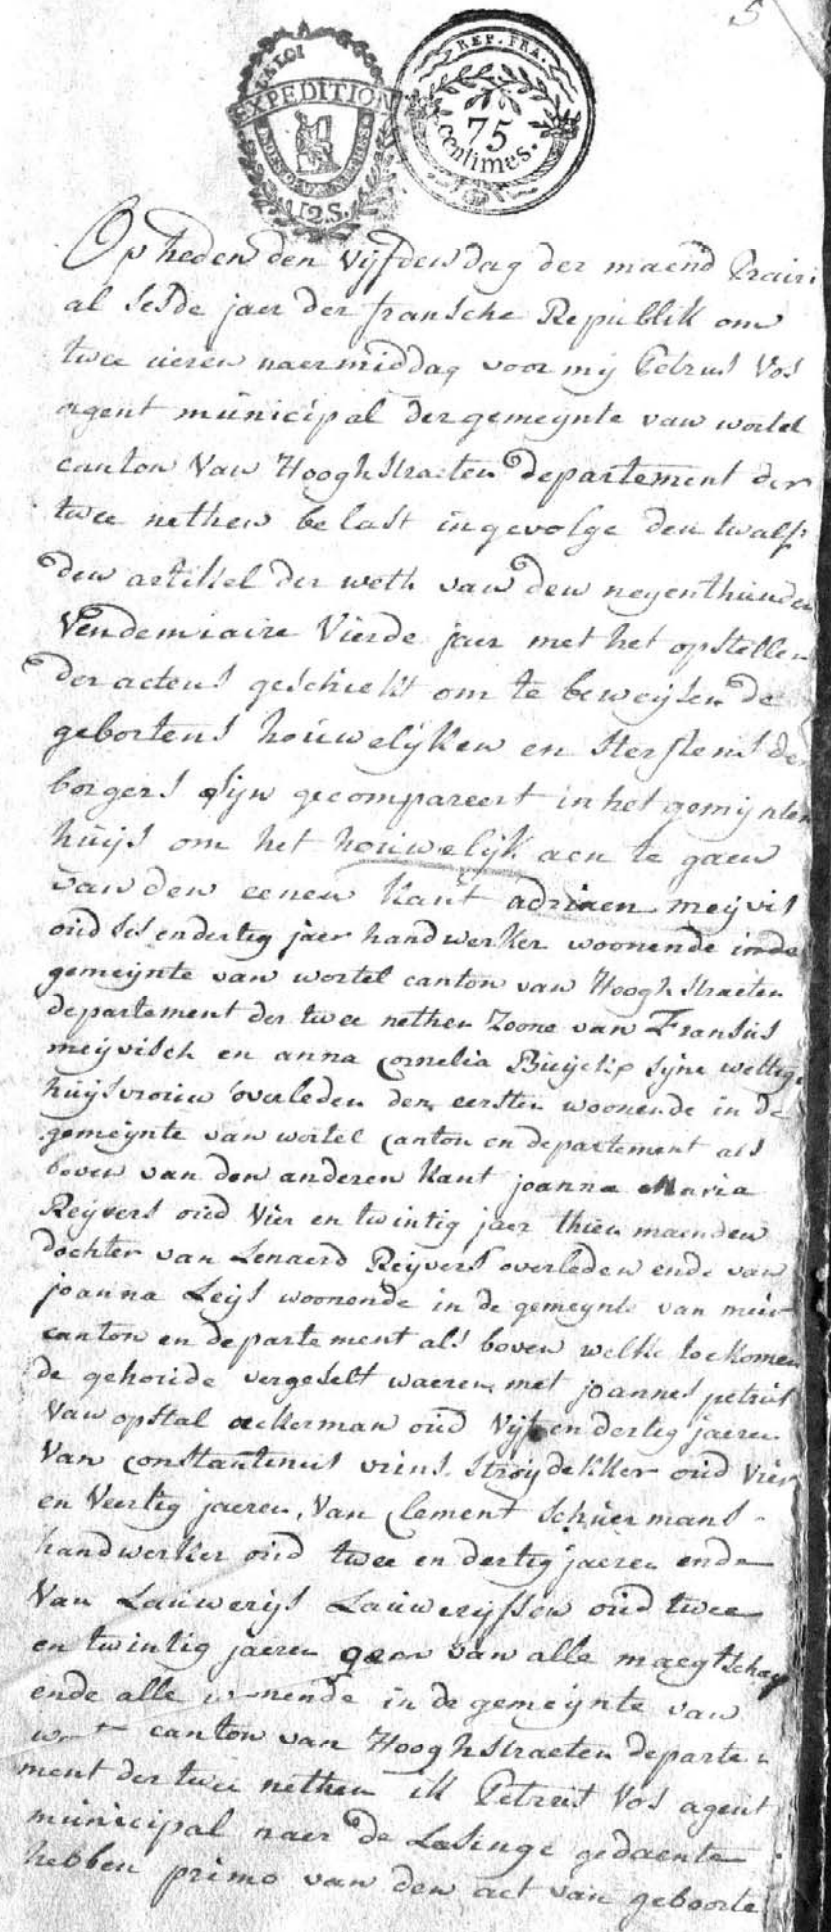 5
LA LOI
EXPEDITION
12 S.
REP. FRA.
75
centimes.
Op heden den Vijfden dag der maend Prairi
al sesde jaer der fransche Republik om
twee uren naermiddag voor mij Petrus Vos
agent municipal der gemeijnte van wortel
canton Van Hooghstraeten departement der
twee nethen belast ingevolge den twalf
den artikel der weth van den negenthinden
Vendemiaire Vierde jaer met het opstellen
der actens geschiekt om te beweijsen de
gebortens houwelijken en sterftens der
borgers sijn gecompareert in het gemijnten
huijs om het houwelijk aen te gaen
van den eenen kant adriaen meijvis
oud ses en dertig jaer handwerker woonende inde
gemeijnte van wortel canton van Hooghstraeten
departement der twee nethen Zoone van Fransus
meijvisch en anna Cornelia sijne wettige
huijsvrouw overleden den eersten woonende in de
gemeijnte van wortel canton en departement als
boven van den anderen kant joanna Maria
Reijvers oud Vier en twintig jaer thien maenden
dochter van Lenaerd Reijvers overleden ende van
joanna Leijs woonende in de gemeynte van meir
canton en departement als boven welke toekomen
de gehouide vergeselt waeren met joannes petrus
Van opstal ackerman oud Vijf en dertig jaeren
Van Constantinus vrins stroijdekker oud Vier
en Veertig jaeren, Van Clement Schuermans
handwerker oud twee en dertig jaeren ende
Van Lauwerijs Lauwerijssen oud twee
en twintig jaeren geen van alle maegtschap
ende alle wonende in de gemeijnte van
canton van Hooghstraeten departe
ment der twee nethen ik Petrus Vos agent
municipal naer de Lesinge gedaente
hebben primo van den act van geboorte